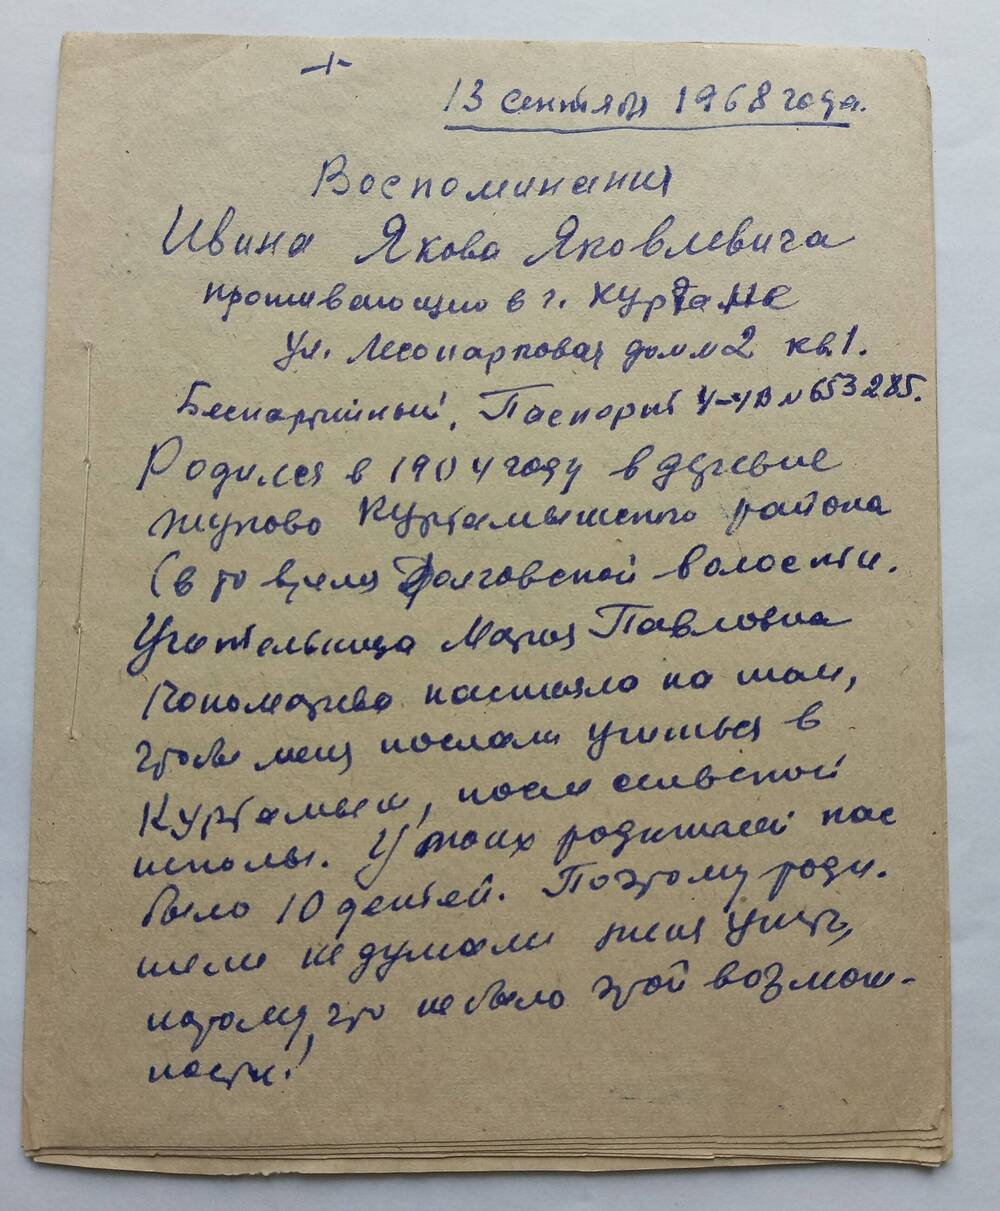 13 сентября 1968 года.
Воспоминания
Ивина Якова Яковлевича
проживающию в г. Куртамыше
Ул. Лесопарковая дом №2 кв 1.
Беспартийный, Паспорт № 653285.
Родился в 1904 году в деревне
Жуково Куртамышского района
(в то время Долговской волости.
Учительница Мария Павловна
Пономарева настояла на том,
чтобы меня послали учиться в
Куртамыш, после сельской
школы. У моих родителей нас
было 10 детей. Поэтому роди-
тели не думали меня учить,
потому, что не было этой возмож-
ности!